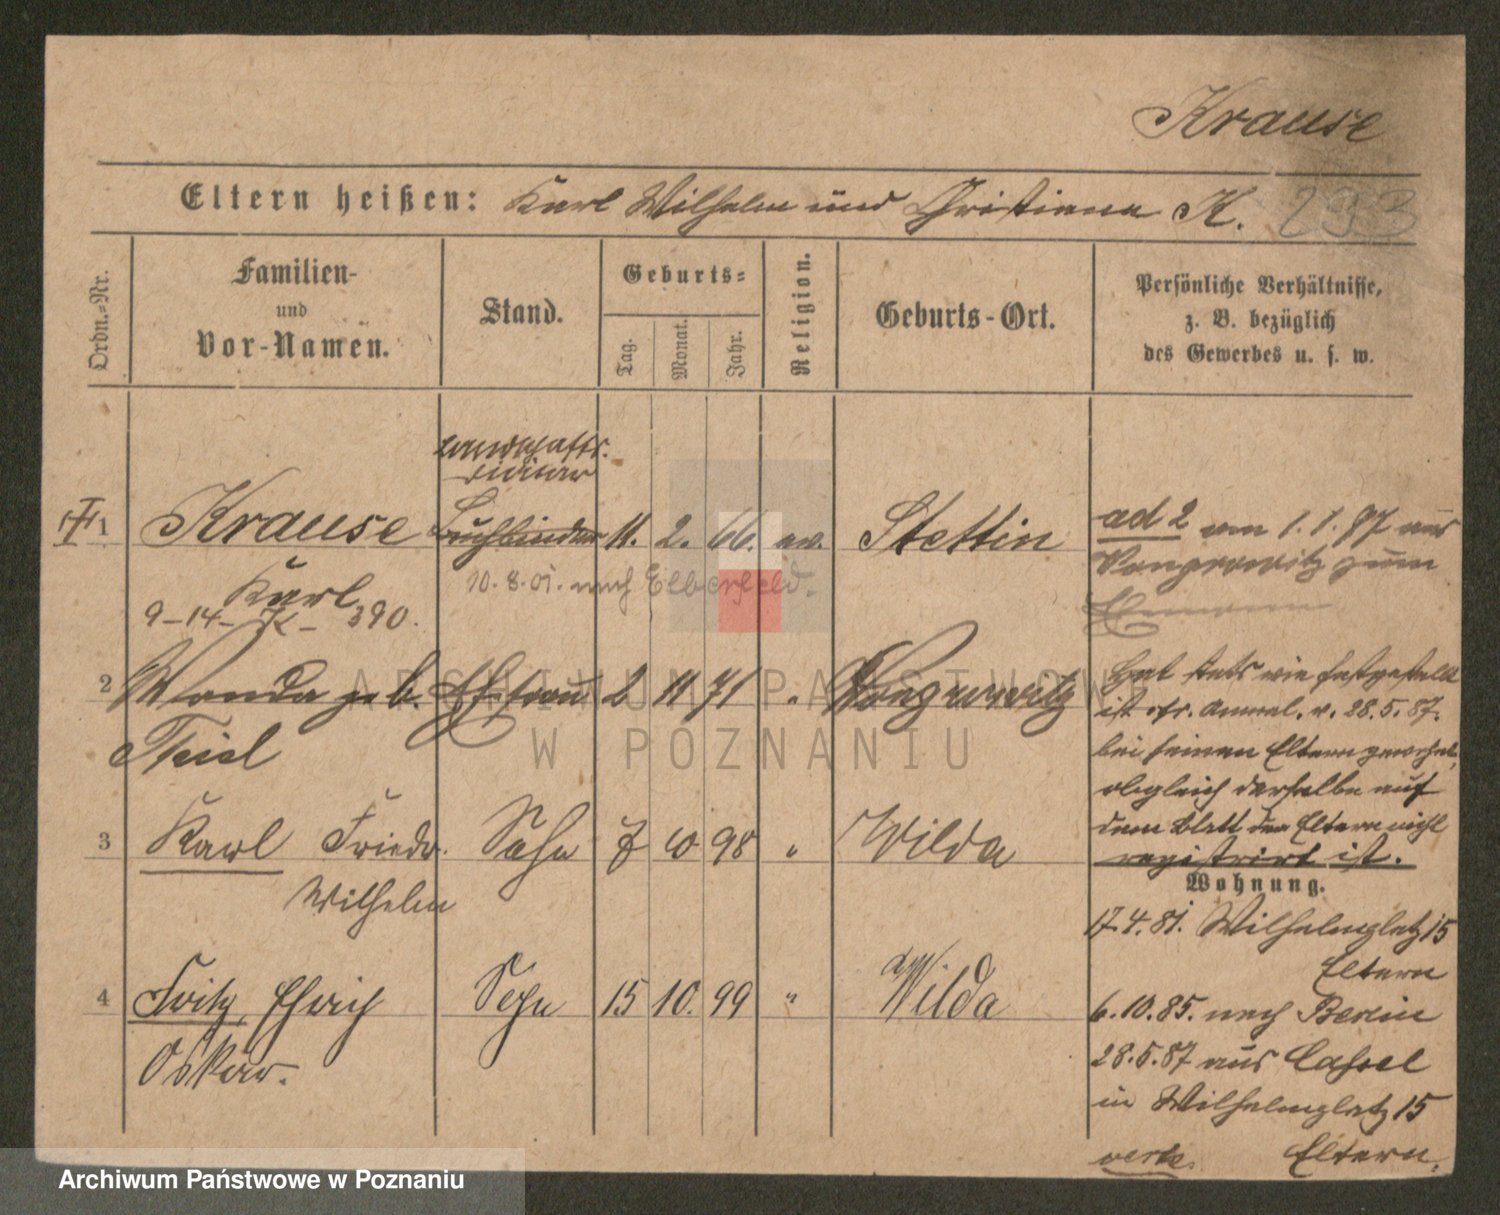 Krause
Eltern heißen: Karl Wilhelm und Christiana K. 293
Ordn.-Nr.
Familien-
und
Vor-Namen.
Stand.
Geburts-
Tag. Monat. Jahr.
Religion.
Geburts-Ort.
Persönliche Verhältnisse,
z. B. bezüglich
des Gewerbes u. s. w.
Landschafts.
1 Krause Buchbinder 11. 2. 66. ev. Stettin
Karl
10.8.01. nach Elberfeld.
9-14- K- 390.
2 Wanda geb. Ehefrau 2 11 71 " Wongrowitz
Theil
3 Karl Friedr. Sohn 7 10 98 " Wilda
Wilhelm
4 Fritz Ehrich Sohn 15 10. 99 " Wilda
Oskar.
ad 2 von 1.1.97 aus
Wongrowitz zum
Ehemann
Hat stets wie festgestellt
ist cfr. Anmel. v. 28.5.87.
bei seinen Eltern gewohnt,
obgleich derselbe auf
dem Blatt der Eltern nicht
registrirt ist.
Wohnung.
17.4.81. Wilhelmplatz 15
Eltern
6.10.85. nach Berlin
28.5.87 aus Cassel
in Wilhelmplatz 15
Eltern.
ARCHIWUM PAŃSTWOWE
W POZNANIU
Archiwum Państwowe w Poznaniu